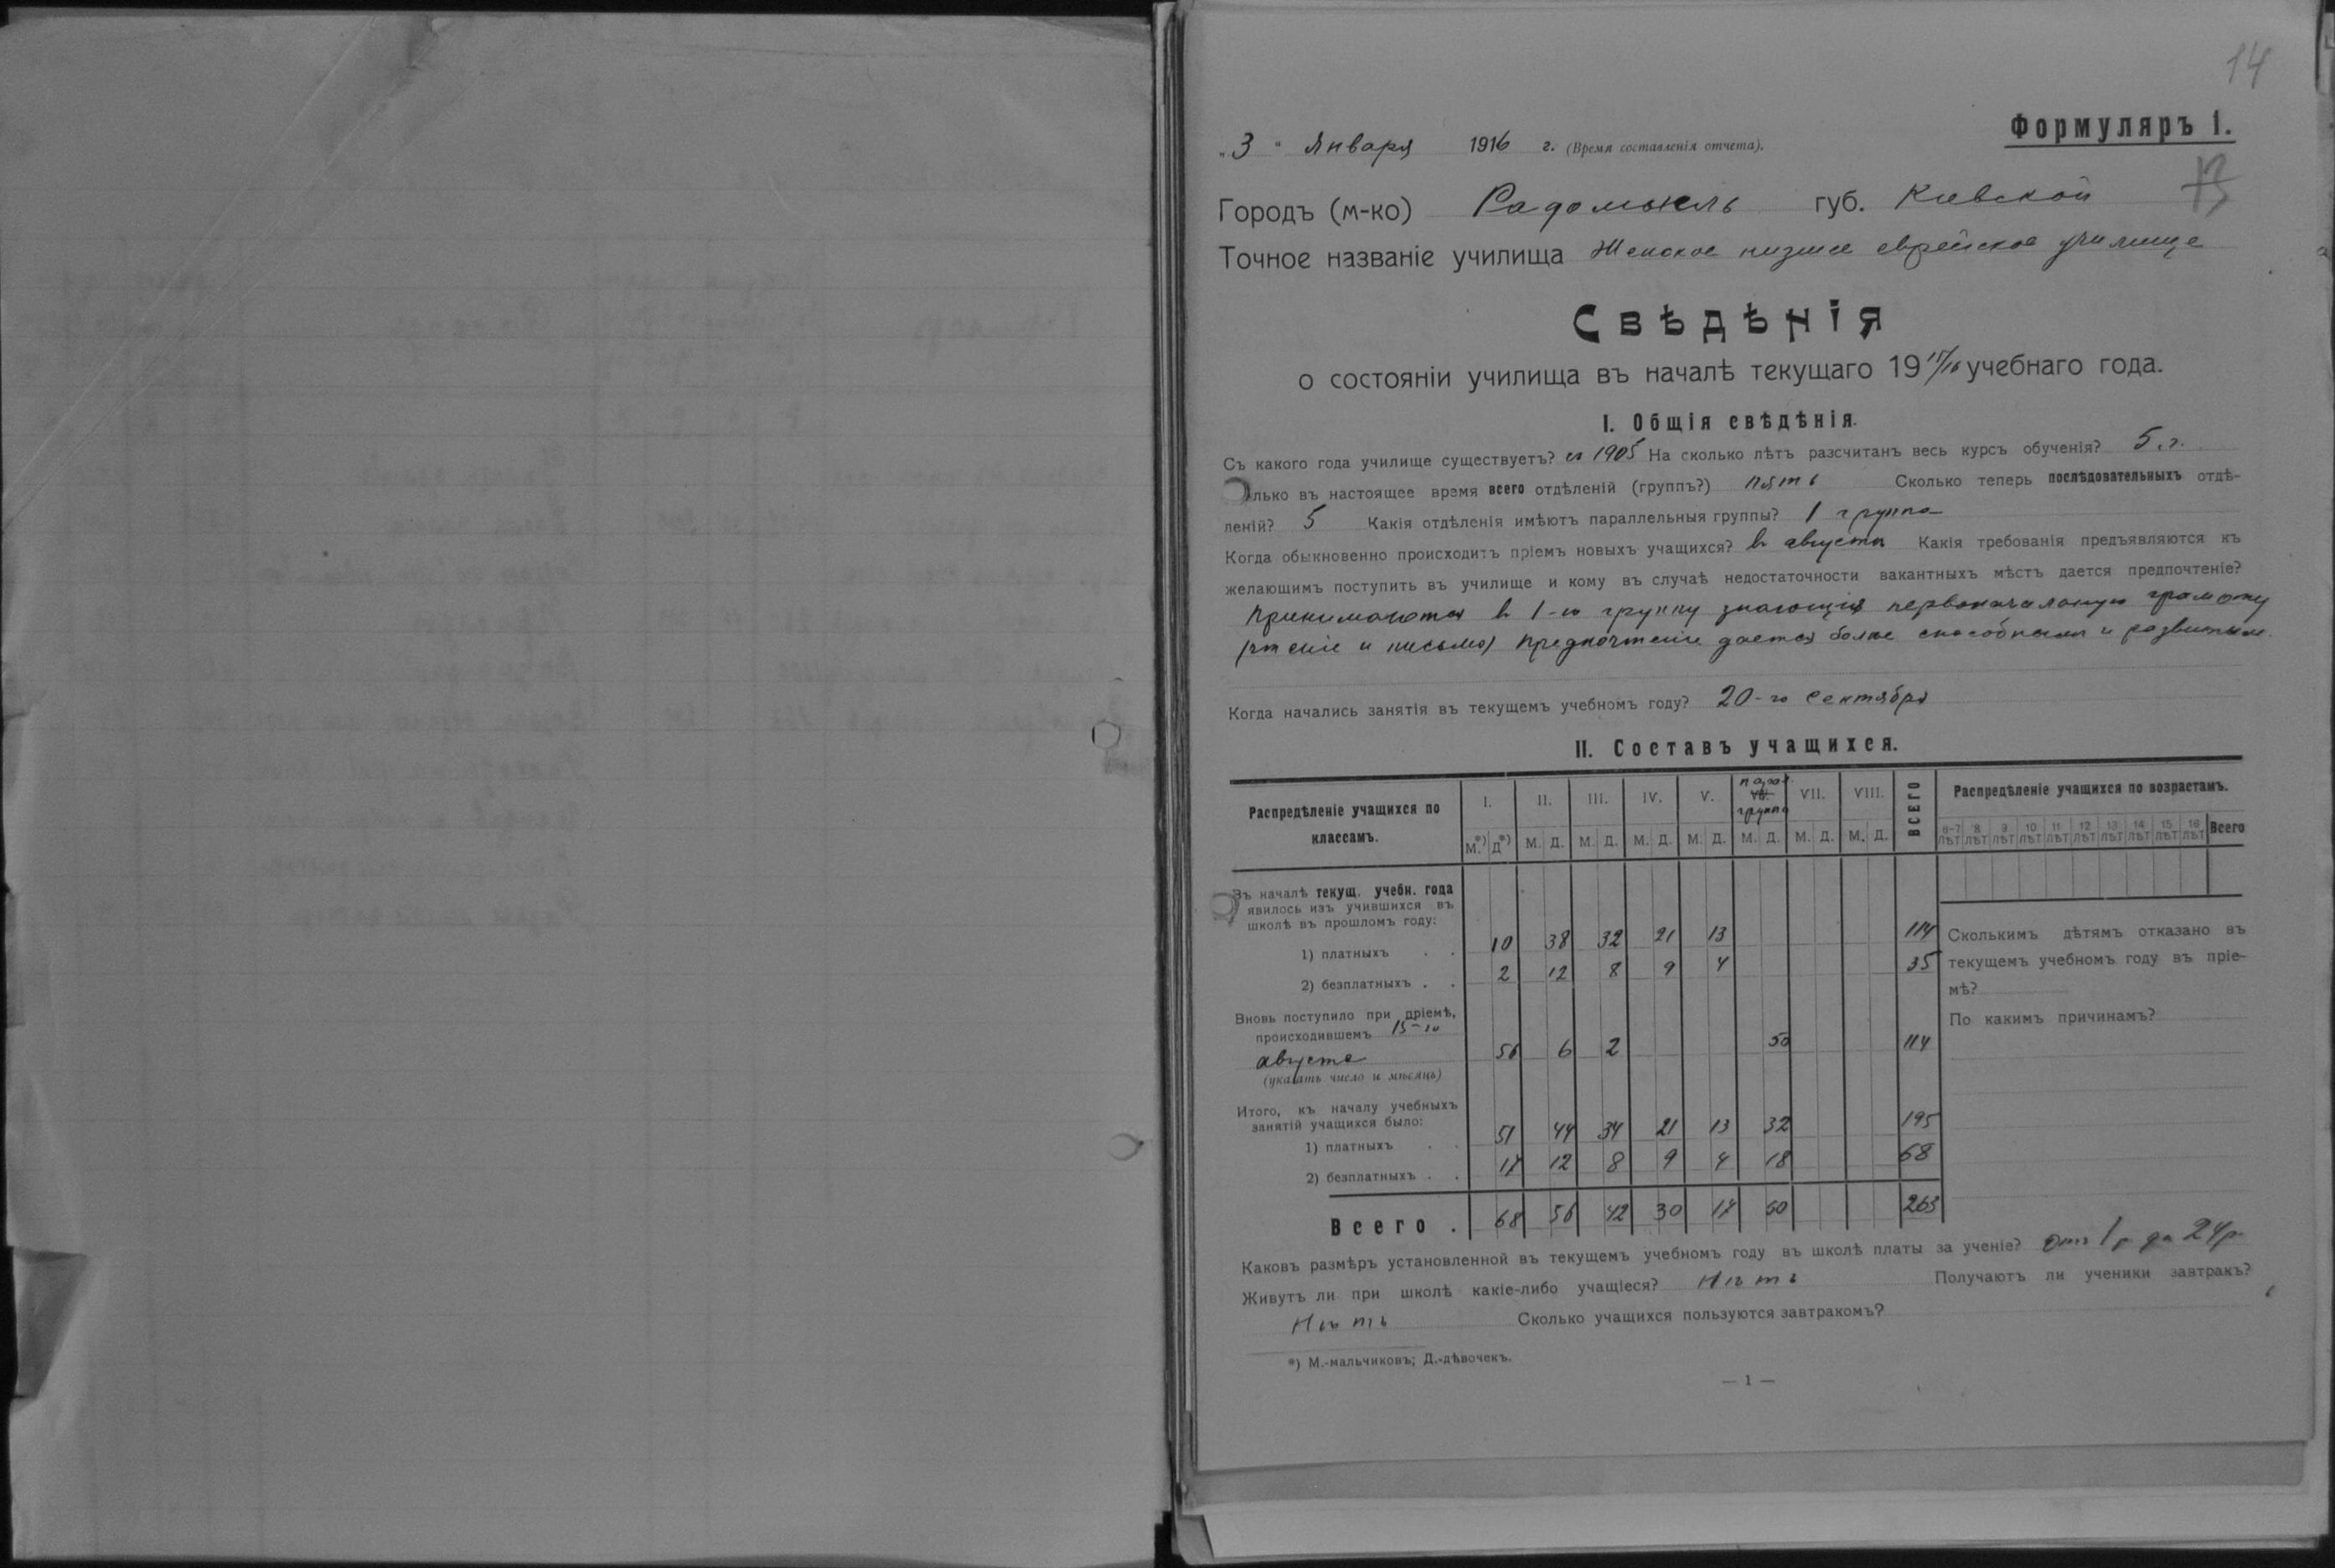 14
Формуляръ I.
„3“ Января 1916 г. (Время составленія отчета).
13
Городъ (м-ко) Радомысль губ. Киевской
Точное названіе училища Женское низшее еврейское училище
Свѣдѣнія
о состояніи училища въ началѣ текущаго 19 15/16 учебнаго года.
I. Общія свѣдѣнія.
Съ какого года училище существуетъ? съ 1905 На сколько лѣтъ разсчитанъ весь курсъ обученія? 5 г.
олько въ настоящее время всего отдѣленій (группъ?) пять Сколько теперь послѣдовательныхъ отдѣ-
леній? 5 Какія отдѣленія имѣютъ параллельныя группы? 1 группа
Когда обыкновенно происходитъ пріемъ новыхъ учащихся? въ августѣ Какія требованія предъявляются къ
желающимъ поступить въ училище и кому въ случаѣ недостаточности вакантныхъ мѣстъ дается предпочтеніе?
Принимаются в 1-ю группу знающія первоначальную грамоту
(чтеніе и письмо) Предпочтеніе дается более способным и развитым.
Когда начались занятія въ текущемъ учебномъ году? 20-го сентября
II. Составъ учащихся.
Распредѣленіе учащихся по классамъ. I. II. III. IV. V. VI. группа VII. VIII. ВСЕГО Распредѣленіе учащихся по возрастамъ.
М.*) Д*) М. Д. М. Д. М. Д. М. Д. М. Д. М. Д. М. Д. 6-7 лѣт 8 лѣт 9 лѣт 10 лѣт 11 лѣт 12 лѣт 13 лѣт 14 лѣт 15 лѣт 16 лѣт Всего
Въ началѣ текущ. учебн. года
явилось изъ учившихся въ
школѣ въ прошломъ году:
1) платныхъ . . 10 38 32 21 13 114
2) безплатныхъ . . 2 12 8 9 4 35
Вновь поступило при пріемѣ,
происходившемъ 15-го
августа 56 6 2 50 114
(указать число и мѣсяцъ)
Итого, къ началу учебныхъ
занятій учащихся было:
1) платныхъ . . 51 44 34 21 13 32 195
2) безплатныхъ . . 17 12 8 9 4 18 68
Всего . 68 56 42 30 17 50 263
Сколькимъ дѣтямъ отказано въ
текущемъ учебномъ году въ пріе-
мѣ?
По какимъ причинамъ?
Каковъ размѣръ установленной въ текущемъ учебномъ году въ школѣ платы за ученіе? от 1 р до 24 р.
Живутъ ли при школѣ какіе-либо учащіеся? Нѣтъ Получаютъ ли ученики завтракъ?
Нѣтъ Сколько учащихся пользуются завтракомъ?
*) М.-мальчиковъ; Д.-дѣвочекъ.
— 1 —